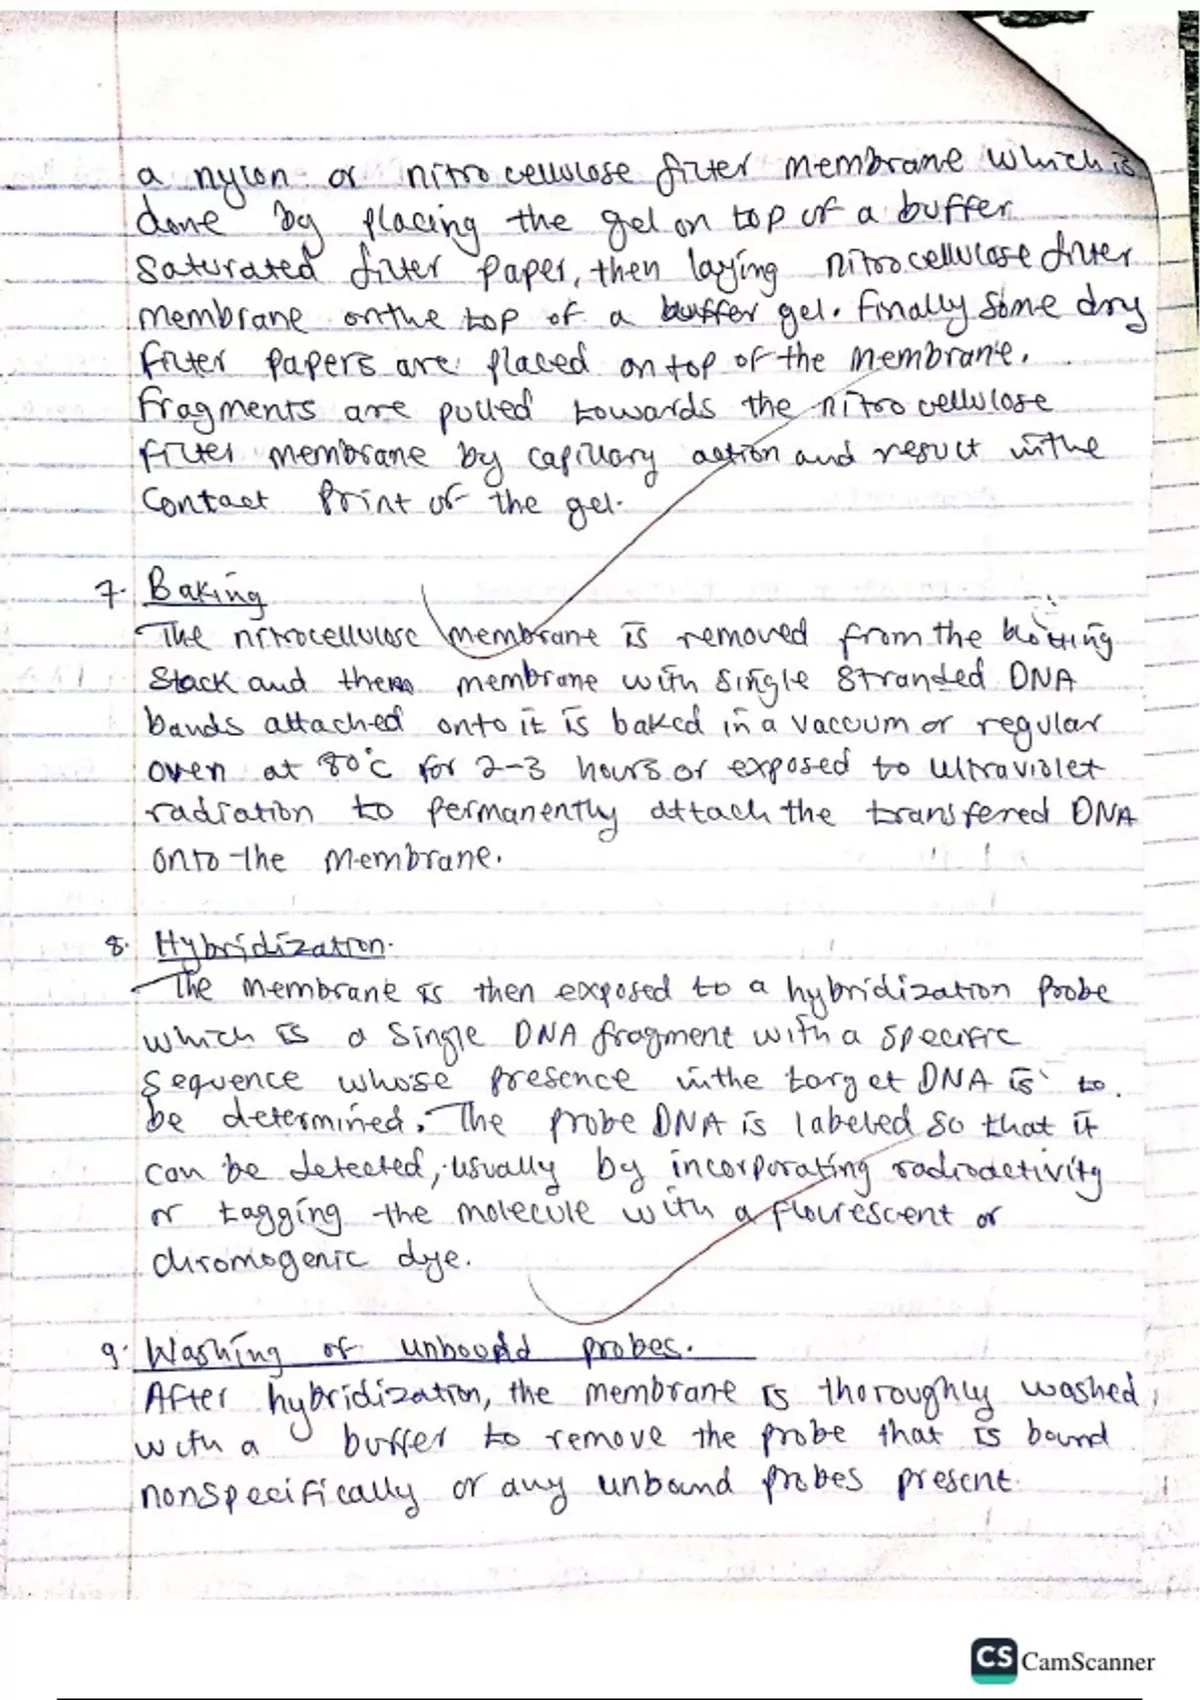 a nylon or nitrocellulose filter membrane which is
done by placing the gel on top of a buffer
saturated filter paper, then laying nitrocellulose filter
membrane on the top of a buffer gel. Finally some dry
filter papers are placed on top of the membrane.
Fragments are pulled towards the nitrocellulose
filter membrane by capillary action and result in the
contact print of the gel.
7. Baking
The nitrocellulose membrane is removed from the blotting
stack and then membrane with single stranded DNA
bands attached onto it is baked in a vaccum or regular
oven at 80°C for 2-3 hours or exposed to ultraviolet
radiation to permanently attach the transferred DNA
onto the membrane.
8. Hybridization.
The membrane is then exposed to a hybridization probe
which is a single DNA fragment with a specific
sequence whose presence in the target DNA is to
be determined. The probe DNA is labeled so that it
can be detected, usually by incorporating radioactivity
or tagging the molecule with a flourescent or
chromogenic dye.
9. Washing of unbound probes.
After hybridization, the membrane is thoroughly washed
with a buffer to remove the probe that is bound
nonspecifically or any unbound probes present.
CS CamScanner